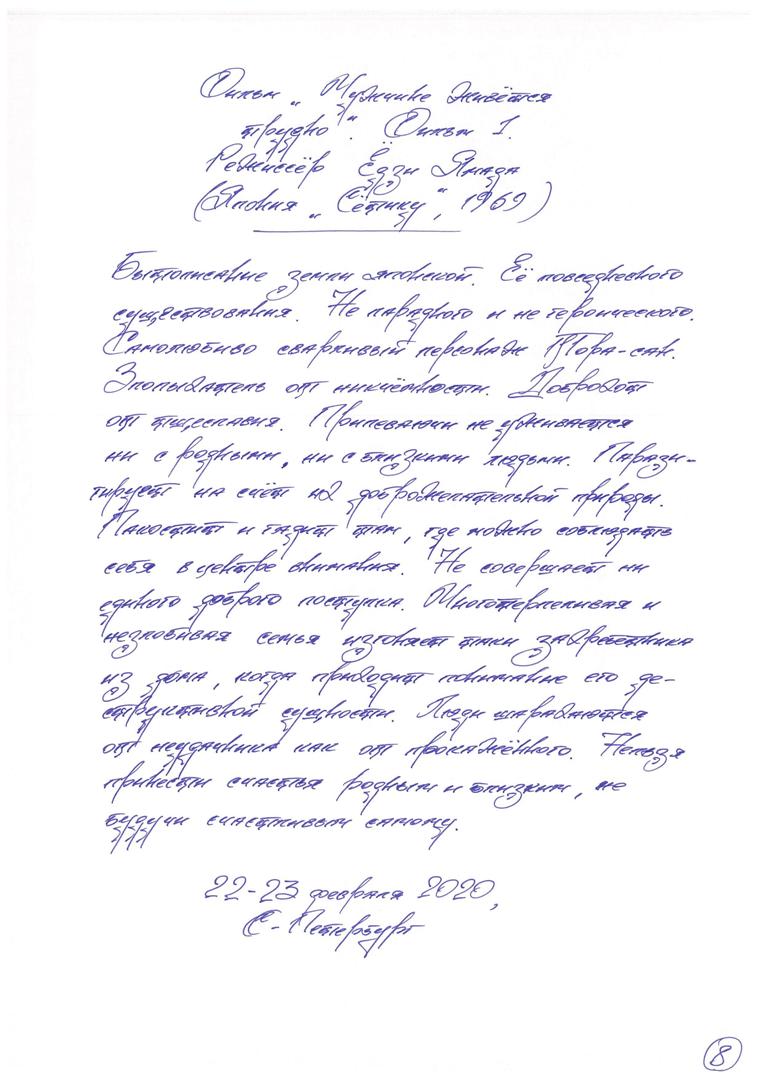 Фильм „Мужчине живётся
трудно“. Фильм 1.
Режиссёр Ёдзи Ямада
(Япония „Сётику“, 1969)
Бытописание земли японской. Её повседневного
существования. Не парадного и не героического.
Самолюбиво сварливый персонаж Тора-сан.
Злопыхатель от никчёмности. Доброхот
от тщеславия. Припеваючи не уживается
ни с родными, ни с близкими людьми. Парази-
тирует на счёт их доброжелательной природы.
Пакостит и гадит там, где можно соблюдать
себя в центре внимания. Не совершает ни
единого доброго поступка. Многотерпеливая и
незлобивая семья изгоняет таки захребетника
из дома, когда приходит понимание его де-
структивной сущности. Люди шарахаются
от неудачника как от прокажённого. Нельзя
принести счастья родным и близким, не
будучи счастливым самому.
22-23 февраля 2020,
С-Петербург
8